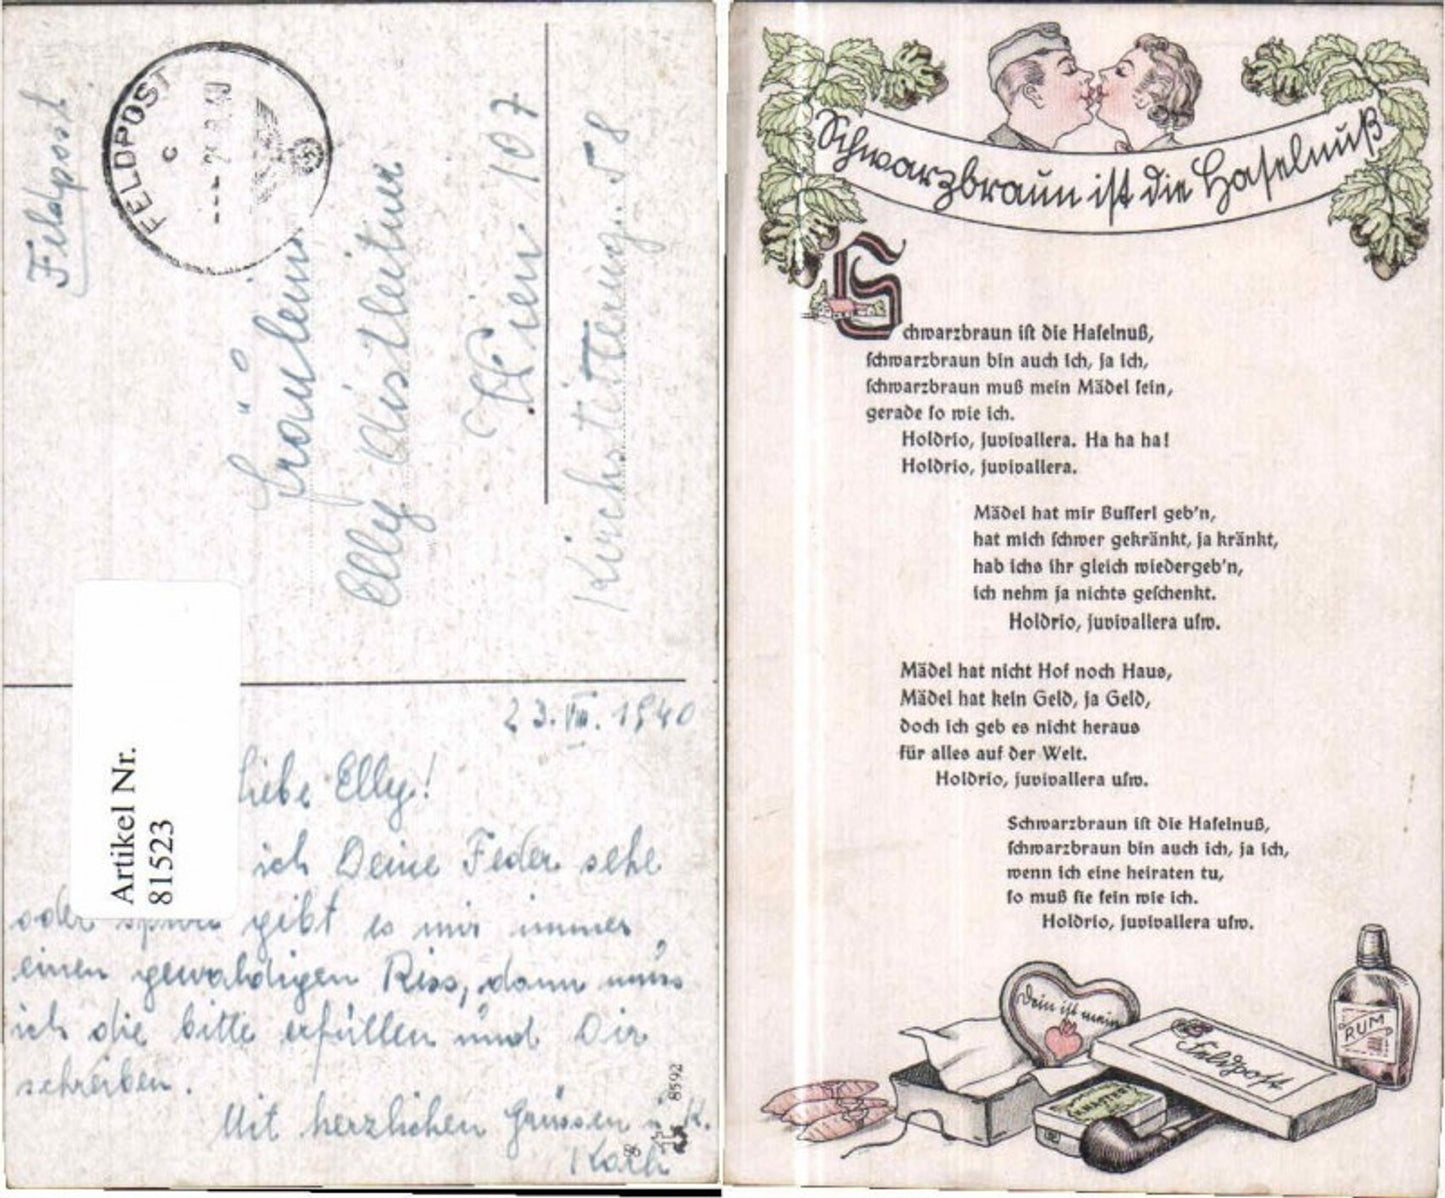 Feldpost
FELDPOST
c
Fräulein
Elly Aistleitner
Wien 107
Kirchstetterng. 58
Artikel Nr.
81523
23. VIII. 1940
Liebe Elly!
ich Deine Feder sehe
oder gibt es mir immer
einen gewaldigen Riss, dann muss
ich die bitte erfüllen und Dir
schreiben.
Mit herzlichen Grüssen u. K.
8592
Schwarzbraun ist die Haselnuß
Schwarzbraun ist die Haselnuß,
schwarzbraun bin auch ich, ja ich,
schwarzbraun muß mein Mädel sein,
gerade so wie ich.
Holdrio, juvivallera. Ha ha ha!
Holdrio, juvivallera.
Mädel hat mir Busserl geb'n,
hat mich schwer gekränkt, ja kränkt,
hab ichs ihr gleich wiedergeb'n,
ich nehm ja nichts geschenkt.
Holdrio, juvivallera usw.
Mädel hat nicht Hof noch Haus,
Mädel hat kein Geld, ja Geld,
doch ich geb es nicht heraus
für alles auf der Welt.
Holdrio, juvivallera usw.
Schwarzbraun ist die Haselnuß,
schwarzbraun bin auch ich, ja ich,
wenn ich eine heiraten tu,
so muß sie sein wie ich.
Holdrio, juvivallera usw.
Dein ist mein
Feldpost
RUM
KNASTER